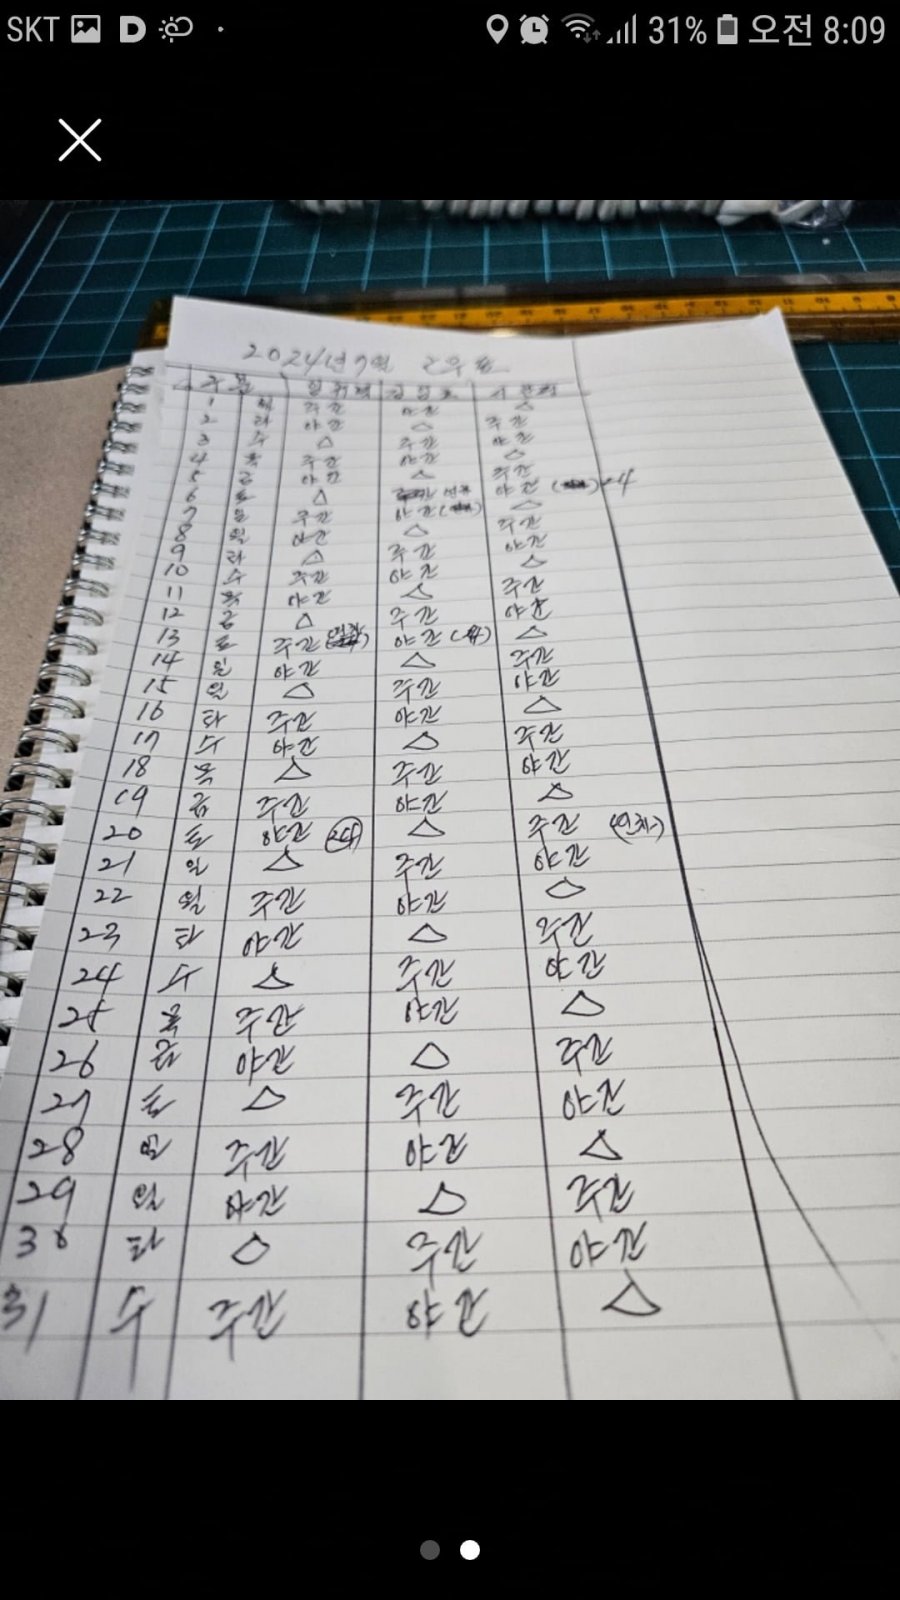 SKT 31% 오전 8:09
2024년 7월 근무표
1 월 주간 야간 △
2 화 야간 △ 주간
3 수 △ 주간 야간
4 목 주간 야간 △
5 금 야간 △ 주간
6 토 △ 야간
7 일 주간 야간 △
8 월 야간 △ 주간
9 화 △ 주간 야간
10 수 주간 야간 △
11 목 야간 △ 주간
12 금 △ 주간 야간
13 토 주간 야간 △
14 일 야간 △ 주간
15 월 △ 주간 야간
16 화 주간 야간 △
17 수 야간 △ 주간
18 목 △ 주간 야간
19 금 주간 야간 △
20 토 야간 △ 주간
21 일 △ 주간 야간
22 월 주간 야간 △
23 화 야간 △ 주간
24 수 △ 주간 야간
25 목 주간 야간 △
26 금 야간 △ 주간
27 토 △ 주간 야간
28 일 주간 야간 △
29 월 야간 △ 주간
30 화 △ 주간 야간
31 수 주간 야간 △